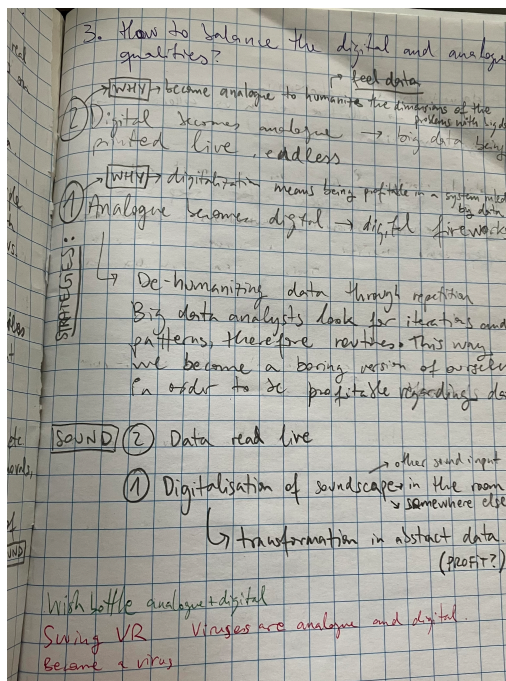 3. How to balance the digital and analogue
qualities?
feel data
WHY → become analogue to humanite the dimensions of the
problems with big data
② Digital becomes analogue → big data being
printed live, endless
WHY → digitalization means being profitable in a system ruled
big data
① Analogue becomes digital → digital fireworks
STRATEGIES:
↳ De-humanizing data through repetition
Big data analysts look for iterations and
patterns, therefore routines. This way
we become a boring version of ourselves
in order to be profitable regarding da
SOUND ② Data read live
→ other sound input
① Digitalisation of soundscape → in the room
↘ somewhere else
↳ transformation in abstract data.
(PROFIT?)
Wish bottle analogue + digital
Swing VR Viruses are analogue and digital.
Become a virus